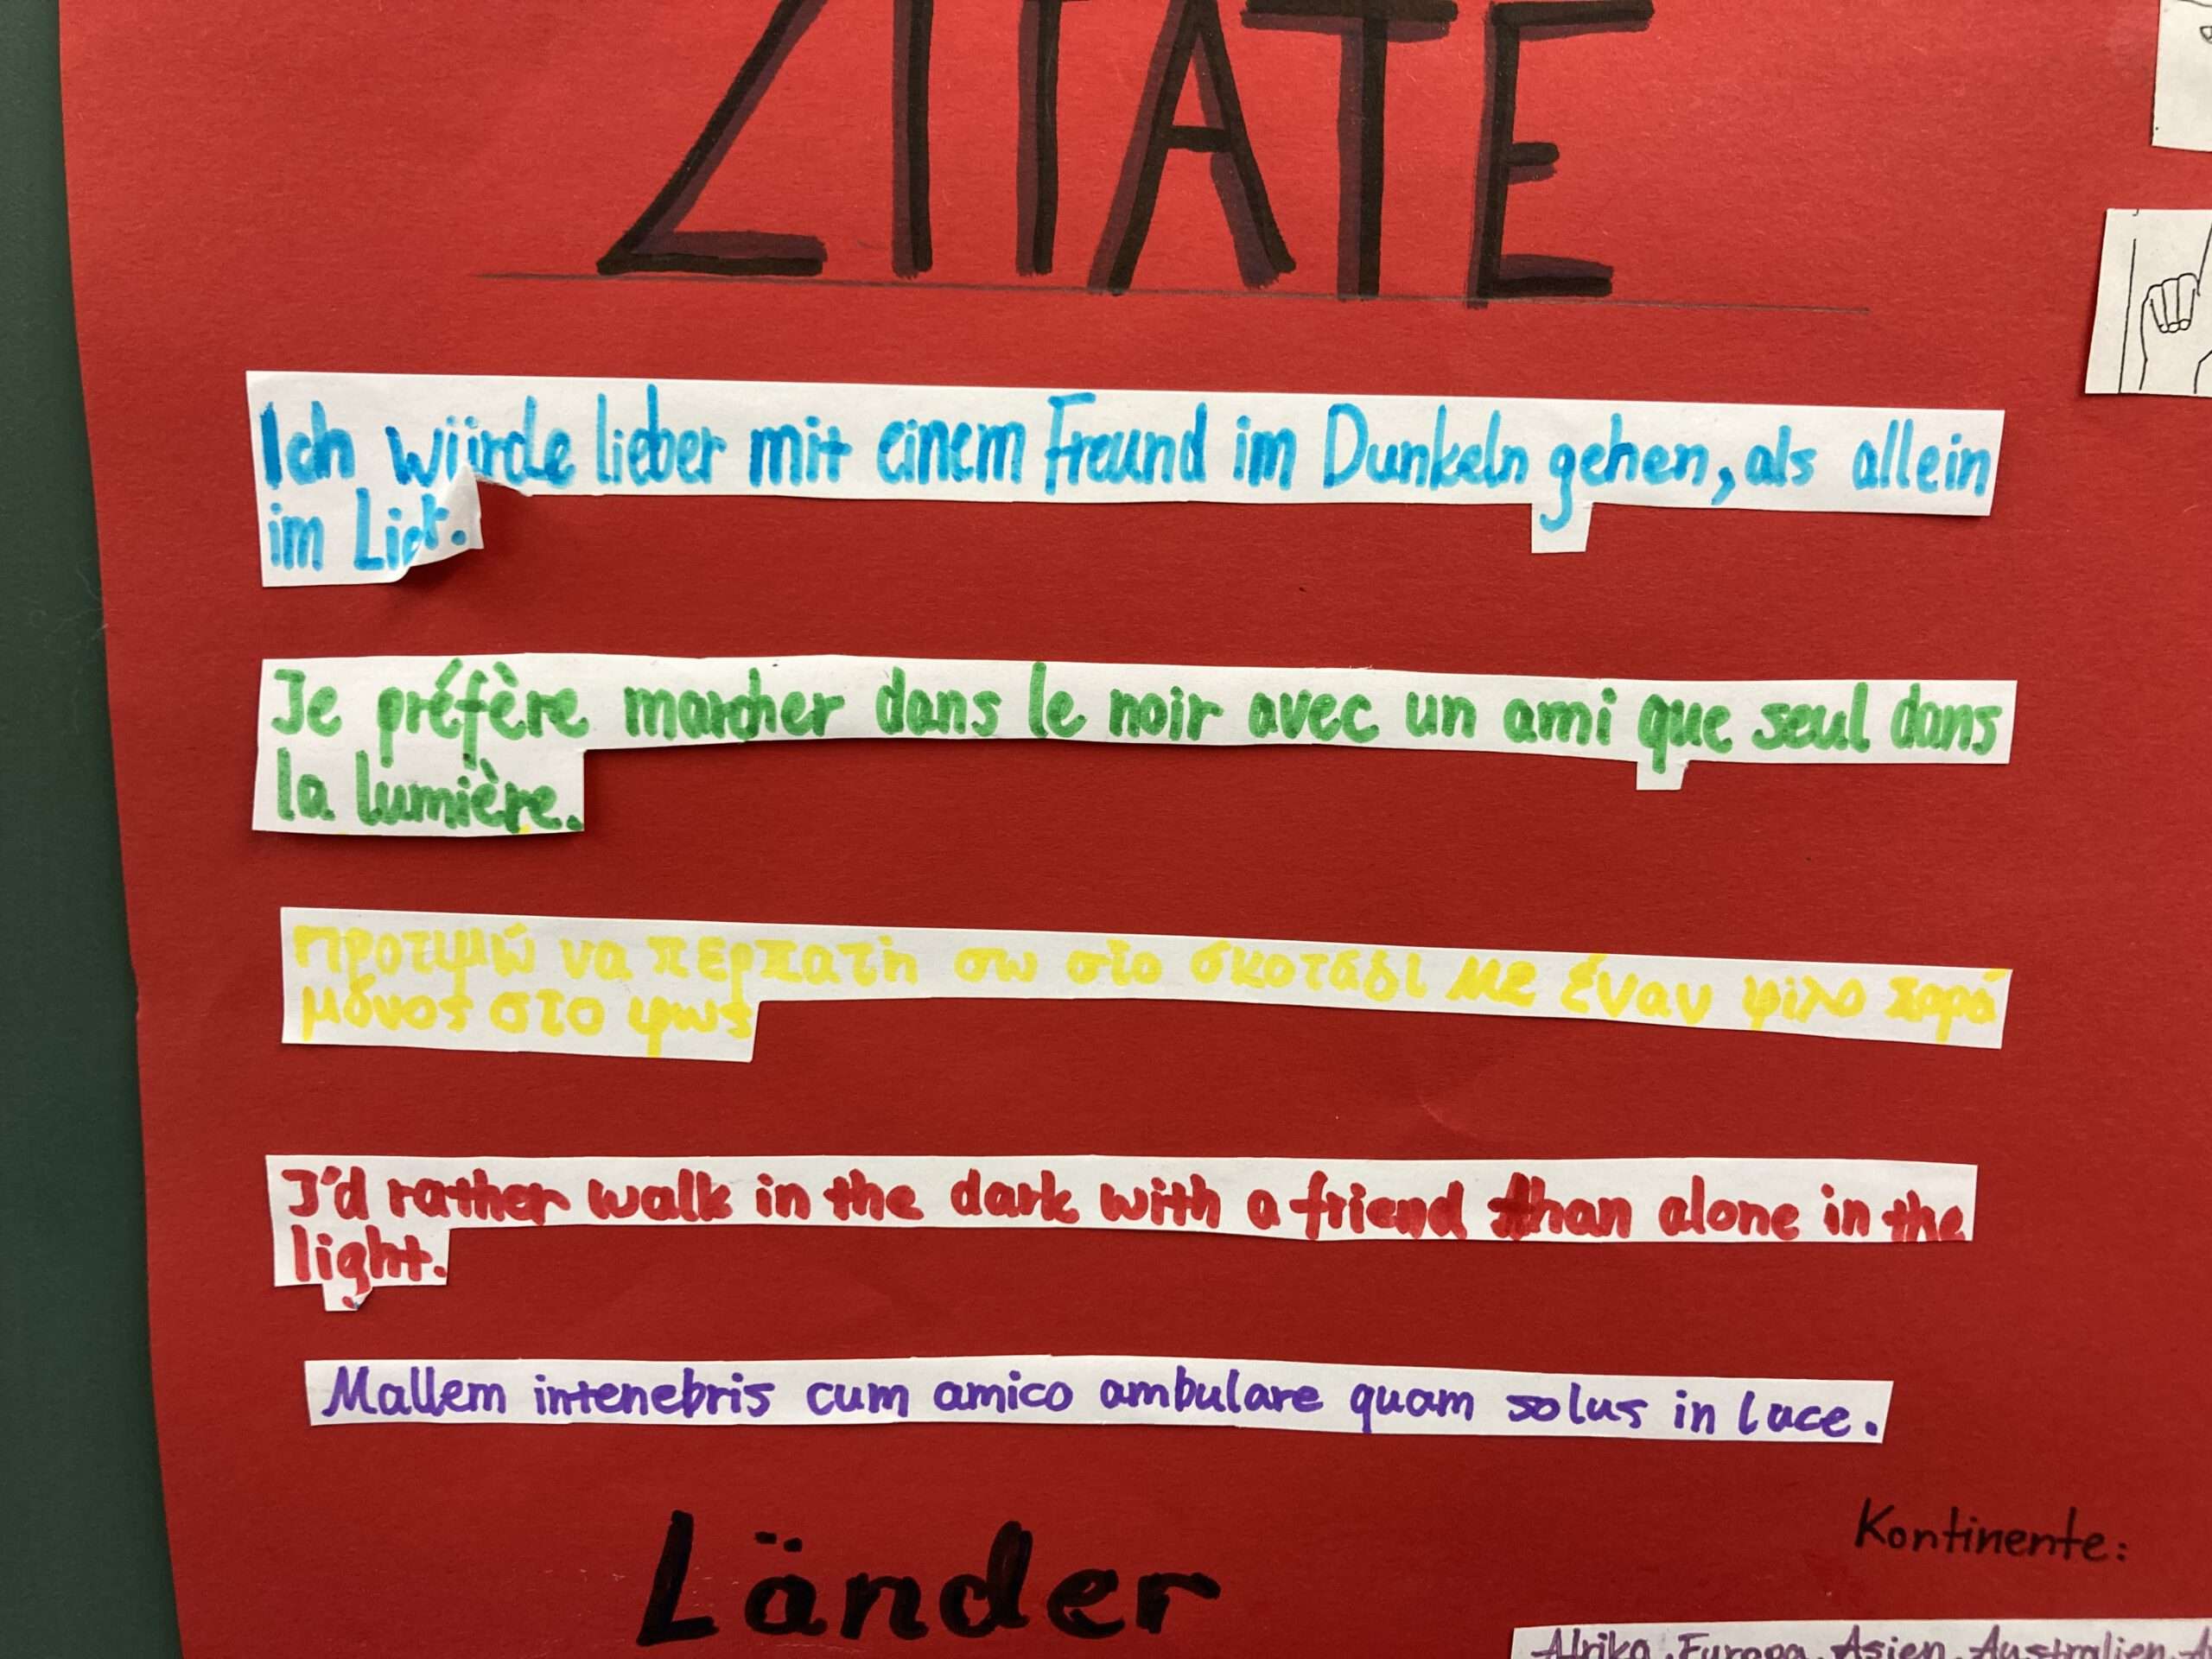 ZITATE
Ich würde lieber mit einem Freund im Dunkeln gehen, als allein
im Licht.
Je préfère marcher dans le noir avec un ami que seul dans
la lumière.
Προτιμώ να περπατή σω στο σκοτάδι με έναν ψίλο παρά
μόνος στο ψως
I'd rather walk in the dark with a friend than alone in the
light.
Mallem intenebris cum amico ambulare quam solus in luce.
Länder
Kontinente:
Afrika, Europa, Asien, Australien,